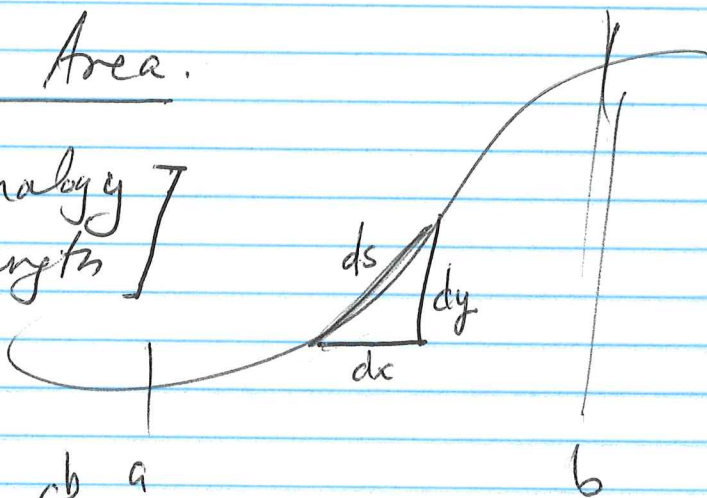 Area.
nalogy
ngth ]
ds
dy
dx
a
b
b